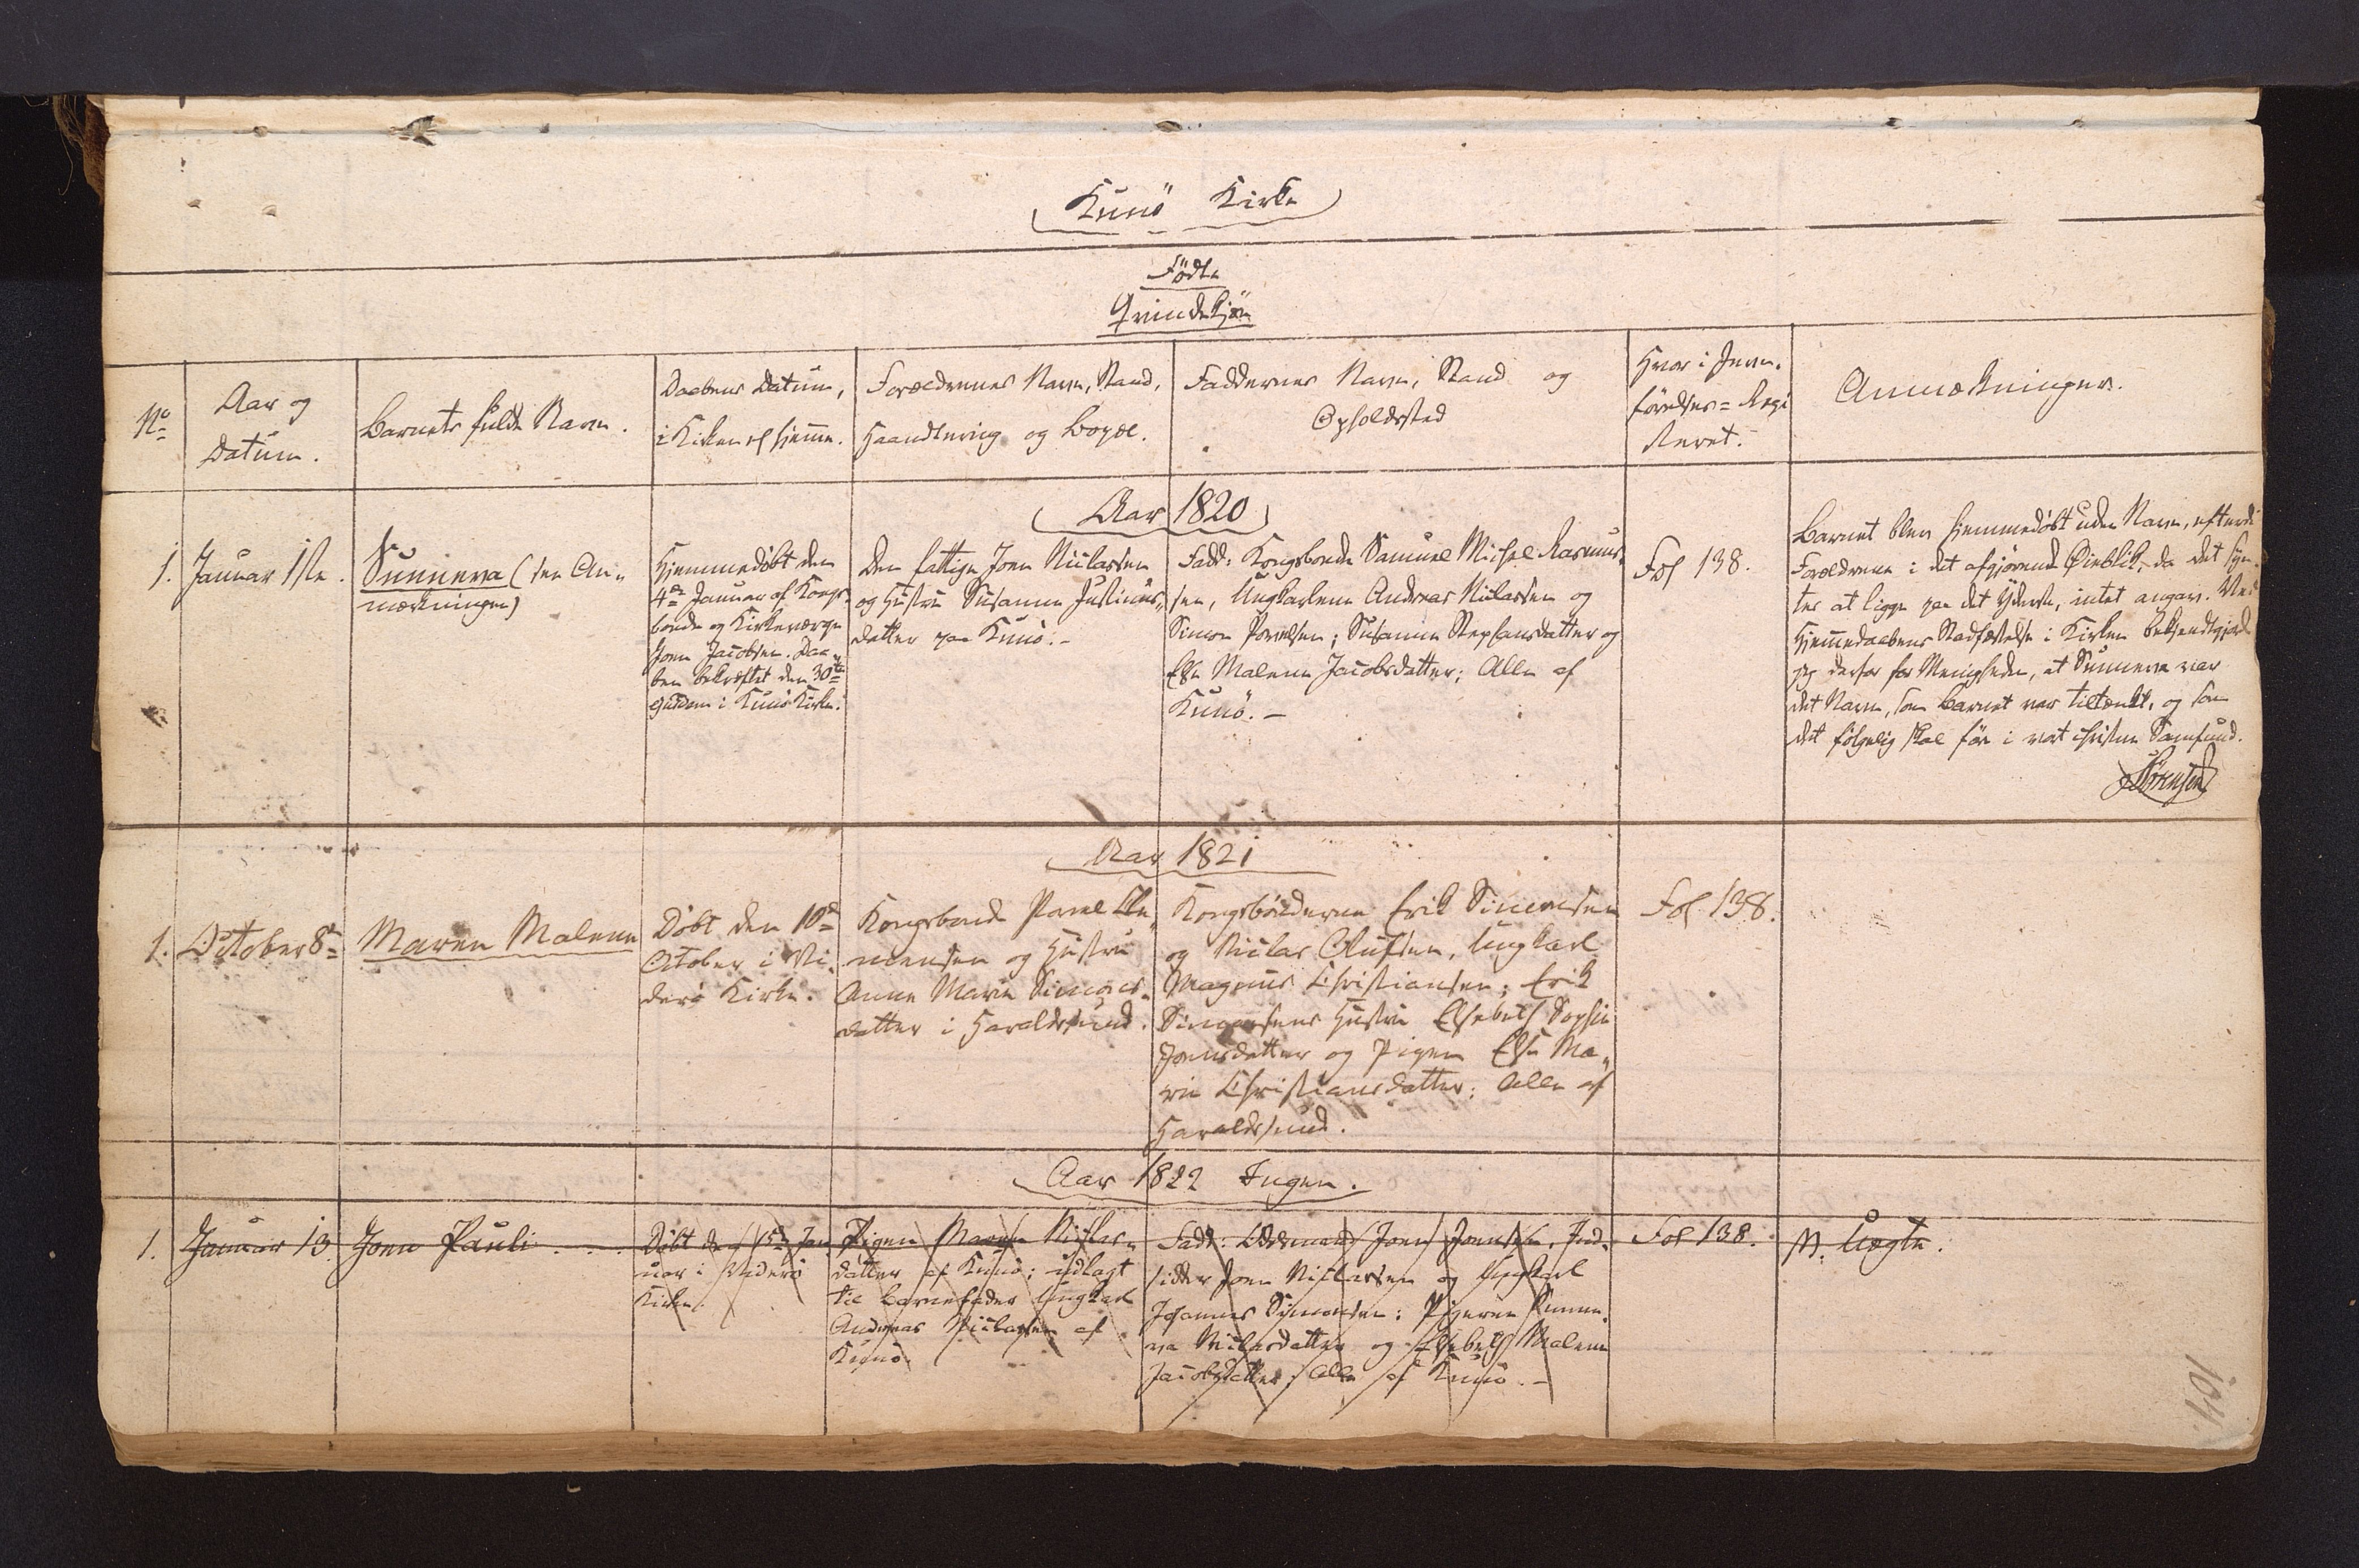 Kunö Kirke
Födte
Qvindekjön
No
Aar og
Datum.
Barnets fulde Navn.
Daabens Datum,
i Kirken el hjemme.
Forældrenes Navn, Stand,
Haandtering og Bopæl.
Faddernes Navn, Stand og
Opholdssted
Hvor i Jevn-
förelses=Regi
steret.
Anmærkninger.
Aar 1820
1.
Januar 1ste.
Sunneva (see An-
mærkningen)
Hjemmedöbt den
4de Januar af Kongs-
bonde og Kirkeværge
Joen Jacobsen. Daa-
ben bekræftet den 30te
ejusdem i Kunö Kirke.
Den fattige Joen Niclassen
og Hustru Susanne Justinus-
datter paa Kunö.-
Fadd: Kongsbonde Samuel Michel Rasmus-
sen, Ungkarlene Andreas Niclassen og
Simon Povelsen; Susanne Stephansdatter og
Else Malene Jacobsdatter; Alle af
Kunö.-
Fol 138.
Barnet blev hjemmedöbt uden Navn, efterdi
Forældrene i det afgjörende Öieblik, da det syn-
tes at ligge paa det Yderste, intet angav. Ved
Hjemmedaabens Stadfæstelse i Kirken bekjendtgjorde
jeg derfor for Menigheden, at Sunneva var
det Navn, som Barnet var tiltænkt, og som
det fölgelig skal före i vort christne Samfund.
Sörensen
Aar 1821
1.
October 8de
Maren Malene
Döbt den 10de
October i Vi-
derö Kirke.
Kongsbonde Povel Cle-
mensen og Hustru
Anne Marie Simons-
datter i Haraldssund.
Kongsbönderne Erik Simonsen
og Niclas Olufsen, Ungkarl
Magnus Christiansen; Erik
Simonsens Hustru Elsebeth Sophie
Joensdatter og Pigen Else Ma-
rie Christiansdatter; Alle af
Haraldssund.
Fol 138.
Aar 1822 Ingen.
1.
Januar 13
Joen Pauli
Döbt den 15de Jan
uar i Viderö
Kirke.
Pigen Maren Niclas-
datter af Kunö; udlagt
til Barnefader Ungkarl
Andreas Niclassen af
Kunö.
Fadd: Joen Joensen, Ind-
sidder Joen Niclassen og Ungkarl
Johannes Simonsen; Pigerne Sunne-
va Niclasdatter og Elsebeth Malene
Jacobsdatter; Alle af Kunö.-
Fol 138.
N. Uægte.
104.